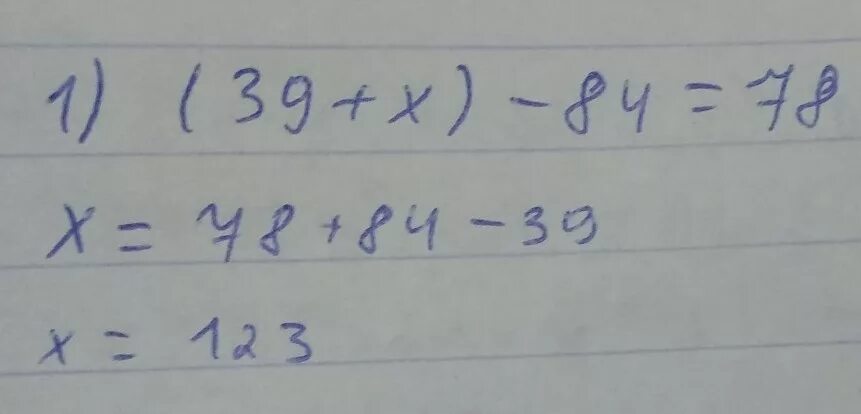 1) (39+x) - 84 = 78
x = 78 + 84 - 39
x = 123